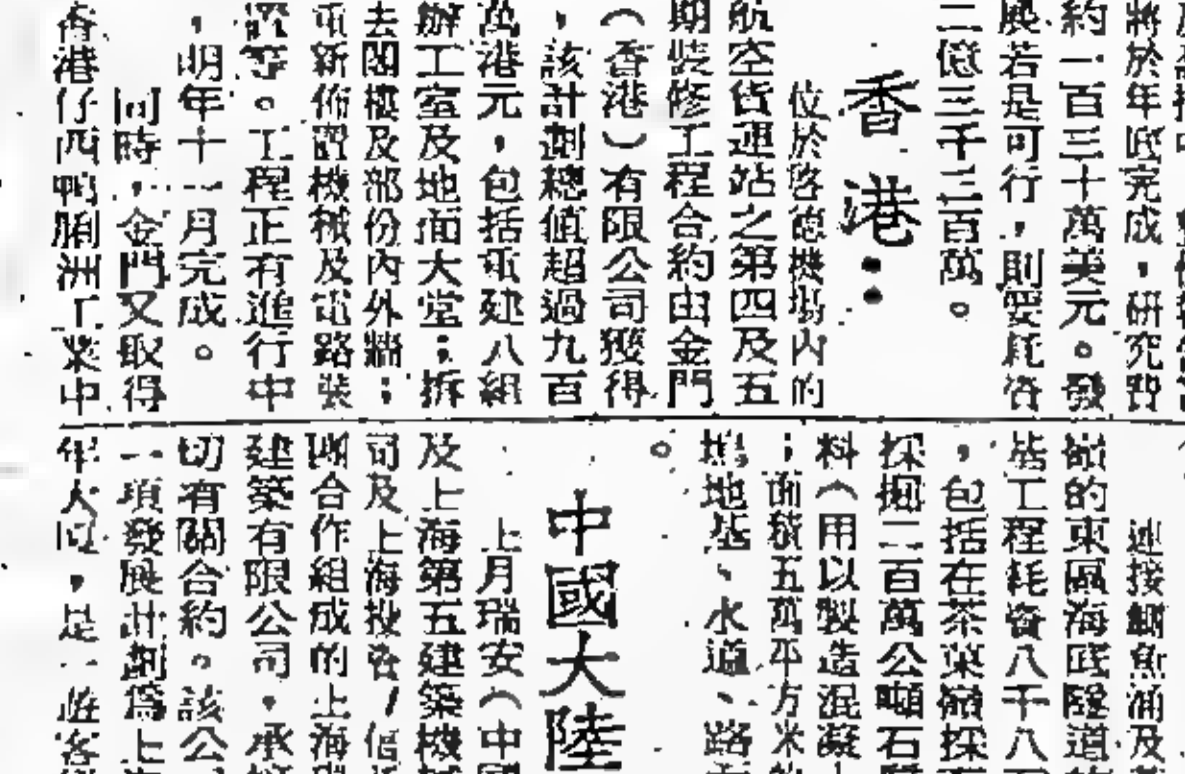 將於年底完成，研究費
約一百三十萬美元。發
展若是可行，則要耗資
二億三千三百萬。
香港：
位於啓德機場內的
航空貨運站之第四及五
期裝修工程合約由金門
（香港）有限公司獲得
，該計劃總值超過九百
萬港元，包括重建八組
辦工室及地面大堂；拆
去閣樓及部份內外牆；
重新佈置機械及電路裝
置等。工程正有進行中
，明年十一月完成。
同時，金門又取得
香港仔西鴨脷洲工業中
連接鰂魚涌及
嶺的東區海底隧道
工程耗資八千八
，包括在茶菓嶺採
採掘二百萬公噸石
料（用以製造混凝
；面積五萬平方米
地基、水道、路
。
中國大陸
上月瑞安（中國
及上海第五建築機
司及上海投資／信
國合作組成的上海
建築有限公司，承
切有關合約。該公
一項發展計劃為上
，是一遊客